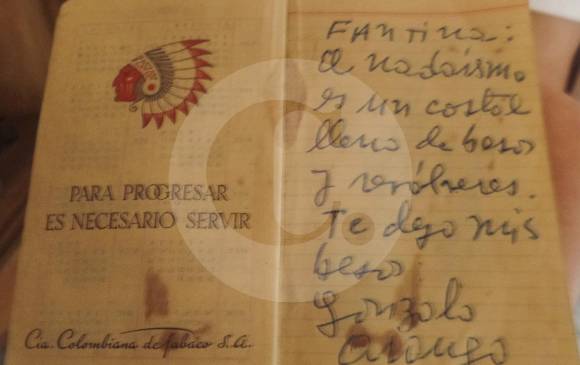 PARA PROGRESAR
ES NECESARIO SERVIR
Cia. Colombiana de Tabaco S.A.
FANTINA:
El nadaísmo
es un costal
lleno de besos
y revólveres.
Te dejo mis
besos
Gonzalo
Arango